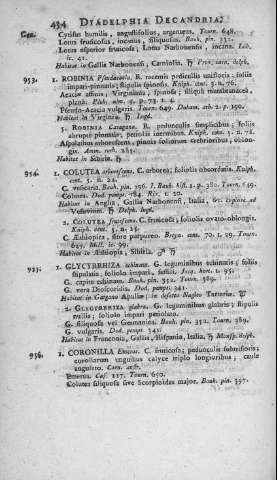 434 DIADELPHIA DECANDRIA;
Gen. Cytisus humilis, angustifolius, argenteus. Tourn. 648.
Lotus fruticosus, incanus, siliquosus. Bauh. pin.
Lotus asperior fruticosa; Lotus Narbonensis, incana. Lob.
ic. 41.
Habitat in Gallia Narbonensi, Carniolia. ♄ Prov. cav. delph.
953. 1. ROBINIA Pseudacacia. R. racemis pedicellis unifloris; foliis
impari-pinnatis; stipulis spinosis. Kniph. cent. 5. n. 76.
Acacia affinis, Virginiana, spinosa; siliqua membranacea,
plana. Pluk. alm. 5. p. 73. t. 4.
Pseudo-Acacia vulgaris. Tourn. 649. Duham. arb. 2. p. 190.
Habitat in Virginia. ♄ Ingd.
3. ROBINIA Caragana. R. pedunculis simplicibus; foliis
abrupte pinnatis; petiolis inermibus. Kniph. cent. 5. n. 78.
Aspalathus arborescens, pinnis foliorum crebrioribus, oblon-
gis. Amm. ruth. 283.
Habitat in Sibiria. ♄
954. 1. COLUTEA arborescens. C. arborea; foliolis obcordatis. Kniph.
cent. 5. n. 22.
C. vesicaria. Bauh. pin. 396. J. Bauh. hist. 1. p. 380. Tourn. 649.
Colutea. Dod. pempt. 784. Riv. t. 20.
Habitat in Anglia, Gallia Narbonensi, Italia,
Vesuvium. ♄ Delph. lugd.
2. COLUTEA frutescens. C. fruticosa; foliolis ovato-oblongis.
Kniph. cent. 5. n. 23.
C. Æthiopica, flore purpureo. Breyn. cent. 70. t. 29. Tourn.
649. Mill. ic. 99.
Habitat in Æthiopia, Sibiria. ♂ ♄
955. 1. GLYCYRRHIZA echinata. G. leguminibus echinatis; foliis
stipulatis, foliolo impari, sessili. Jacq. hort. t. 95.
G. capite echinato. Bauh. pin. 352. Tourn. 389.
G. vera Dioscoridis. Dod. pempt. 341.
Habitat in Gargano Apuliae; in desertis Nagico Tartariae. ♃
2. GLYCYRRHIZA glabra. G. leguminibus glabris; stipulis
nullis; foliolo impari petiolato.
G. siliquosa vel Germanica. Bauh. pin. 352. Tourn. 389.
G. vulgaris. Dod. pempt. 341.
Habitat in Franconia, Gallia, Hispania, Italia, ♃ Monsp. delph.
956. 1. CORONILLA Emerus. C. fruticosa; pedunculis subtrifloris;
corollarum unguibus calyce triplo longioribus; caule
angulato. Crn. austr.
Emerus. Cæs. 117. Tourn. 650.
Colutea siliquosa sive Scorpioides major. Bauh. pin. 397.